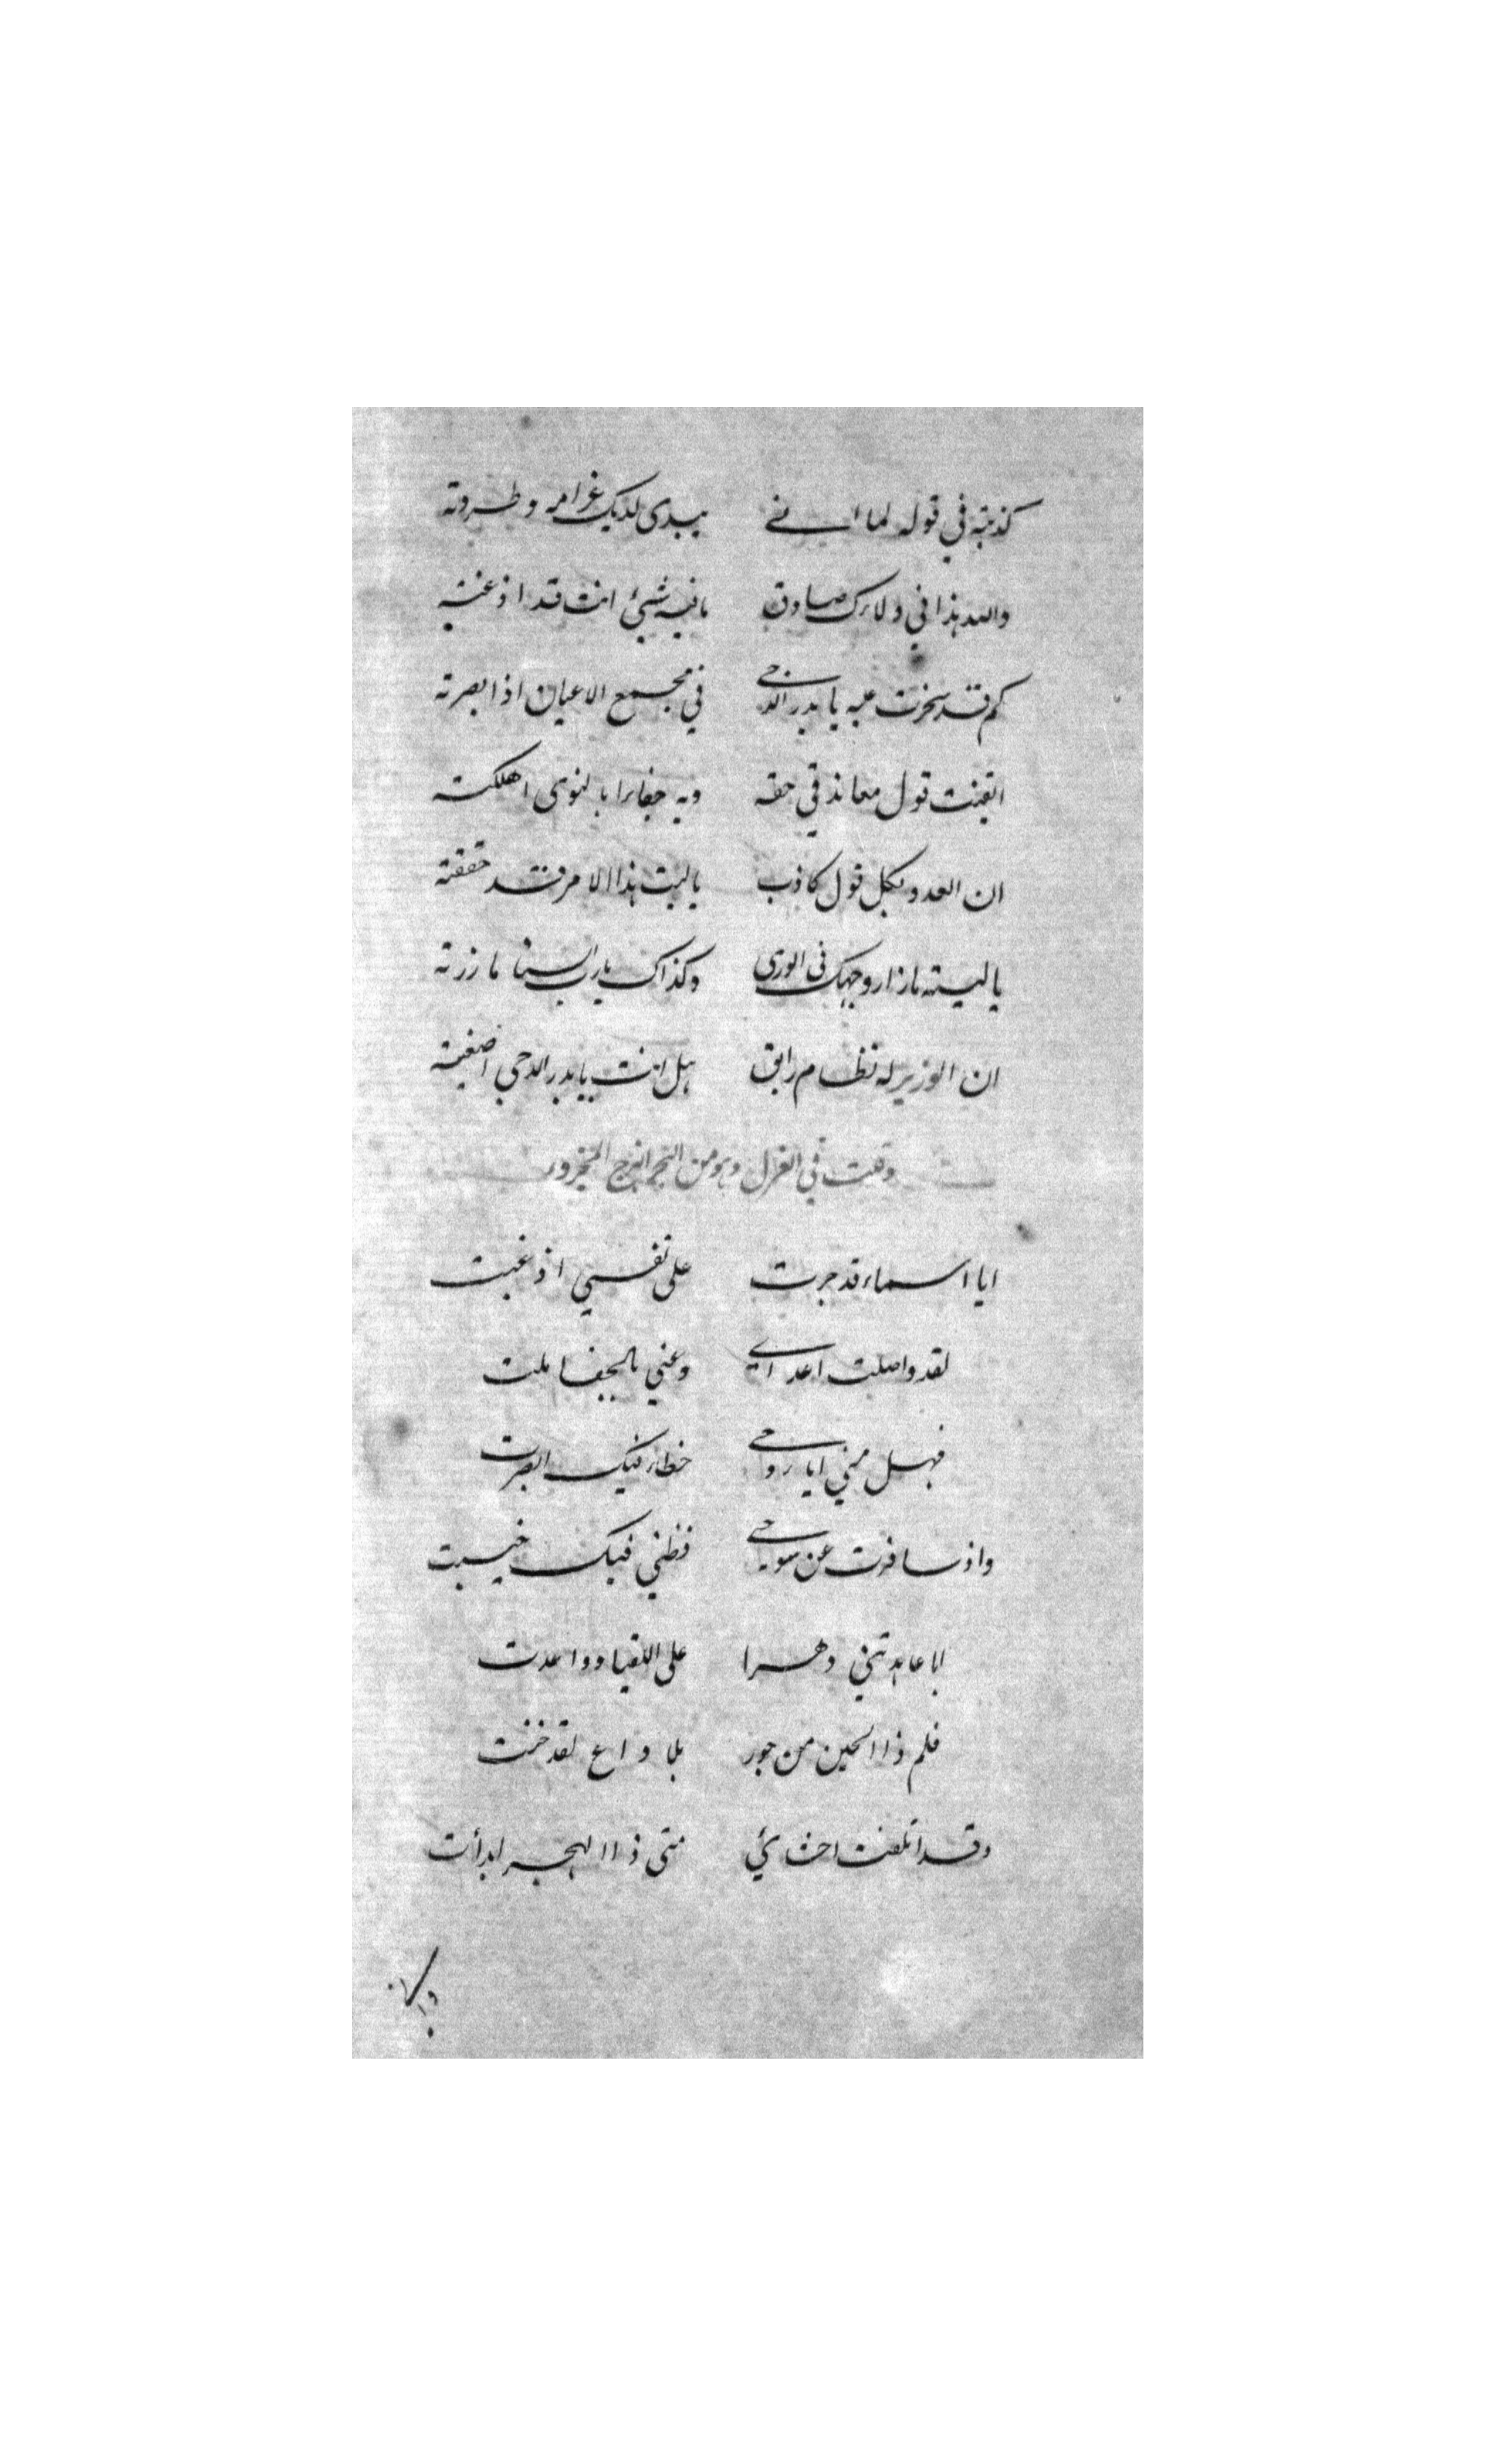 كذبته في قوله لما اتى يبدى لديك غرامه وطردته
والله هذا في ولائك صادق ما فيه شيئ انت قد اذعنته
كم قد سخرت به يا بدر الدجى في مجمع الاعيان اذ ابصرته
اتقنت قول معاند في حقه وبه جفائرا بالنوى اهلكته
ان العدو بكل قول كاذب يا ليت هذا الامر قد حققته
يا ليته ما زار وجهك في الورى وكذاك يا رب السنا ما زرته
ان الوزير له نظام رايق هل انت يا بدر الدجى اصغيته
وقلت في الغزل وهو من البحر الهزج المجزور
ايا اسماء قد جرت على نفسي اذ غبت
لقد واصلت اعدائي وعني بالجفا ملت
فهل مني ايا روحي خطاء فيك ابصرت
واذ سافرت عن سوحي فظني فيك خيبت
اما عاهدتني دهرا على اللقيا وواعدت
فلم ذا الحين من جور بلا داع لقد خنت
وقد اتلفت احشائي متى ذا الهجر ابدأت